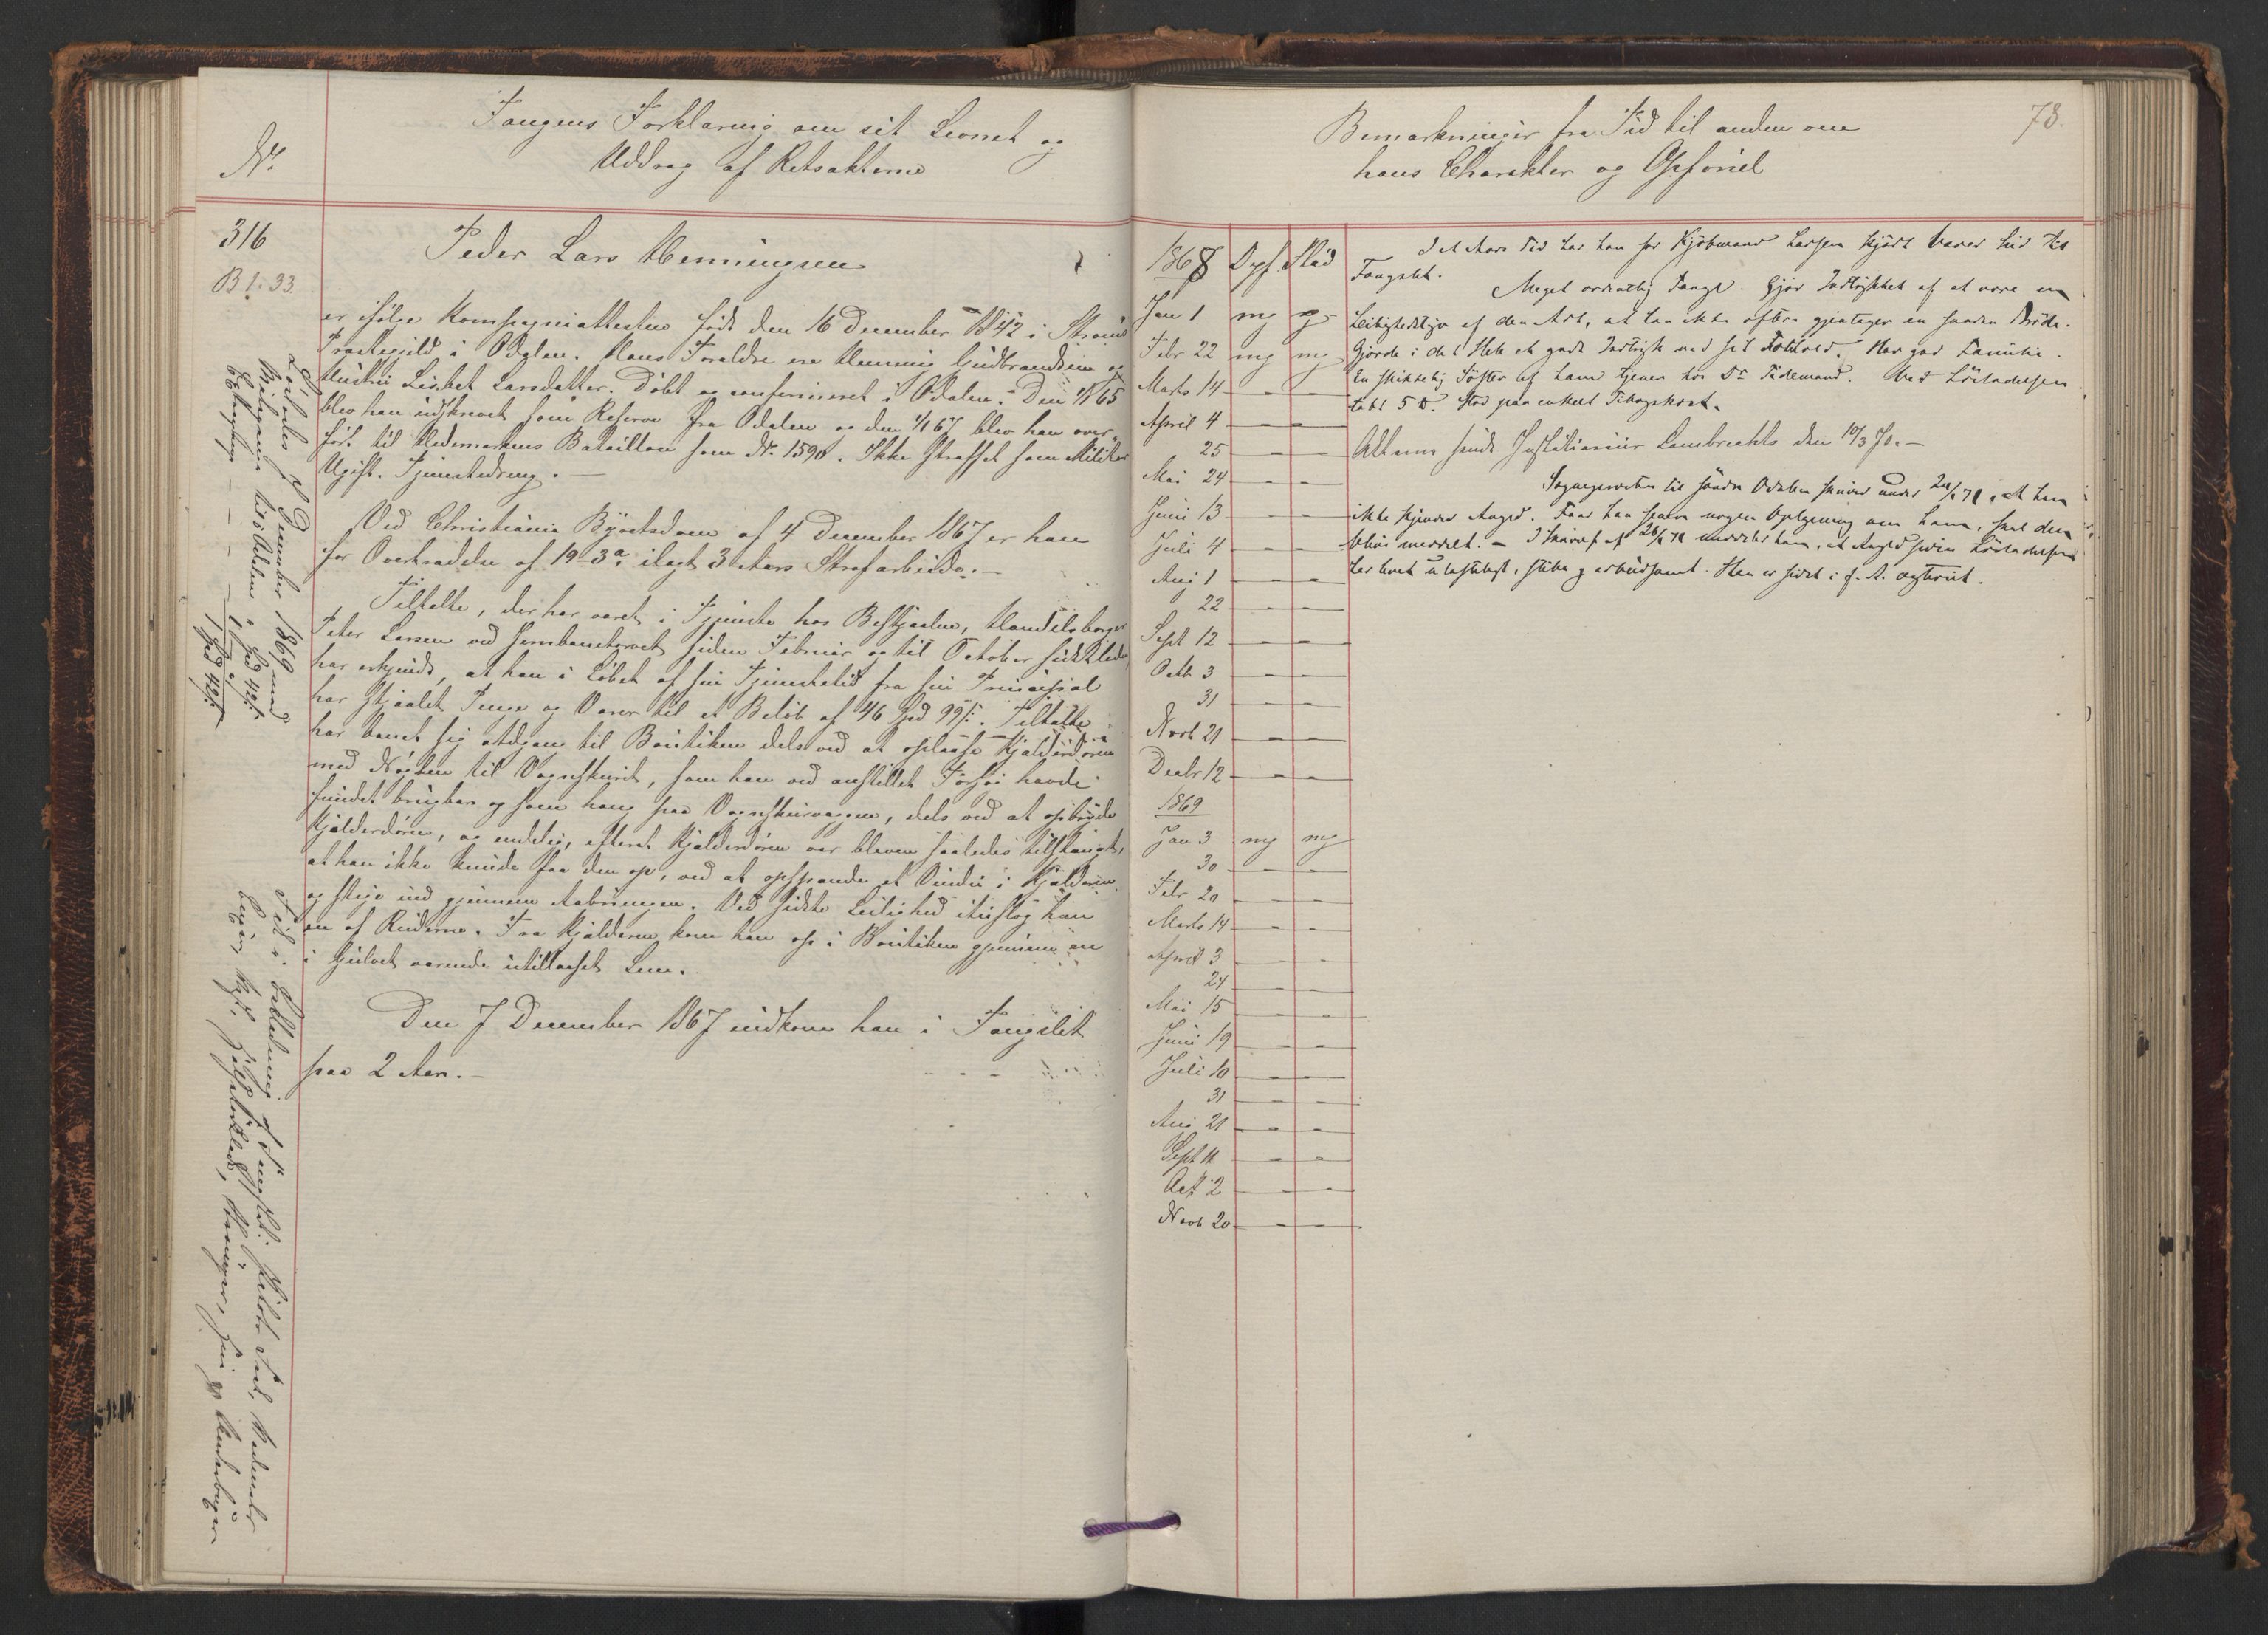 No.
Fangens Forklaring om sit Levnet og
Uddrag af Retsakterne
316
B 1. 33.
Peder Lars Henningsen
er ifølge Kompagniattesten født den 16 December 1842 i Strøms
Præstegjeld i Odalen. Hans Forældre ere Henning Gudbrandsen og
Hustru Lisbet Larsdatter. Døbt og confirmeret i Odalen. Den 1/1 65
blev han indskrevet som Reserve fra Odalen og den 1/1 67 blev han over-
før. til Hedemarkens Bataillon som No. 1590. Ikke straffet som Militær
Ugift. Tjenestedreng. —
Ved Christiania Byretsdom af 4 December 1867 er han
for Overtrædelse af 19-3a ilagt 3 Aars Strafarbeide. —
Tiltalte, der har været i Tjeneste hos Bestjaalne, Handelsborger
Peter Larsen ved Jernbanetorvet siden Februar og til October sidstleden
har erkjendt, at han i Løbet af sin Tjenestetid fra sin Principal
har stjaalet Penge og Varer til et Beløb af 46 Spd 99 s. Tiltalte
har banet sig Adgang til Boutiken dels ved at oplaase Kjælderdøren
med Nøglen til Vognskuret, som han ved anstillet Forsøg havde
fundet brugbar og som hang paa Vognskurvæggen, dels ved at opbryde
Kjælderdøren, og endelig, efterat Kjælderdøren var bleven saaledes tilstængt,
at han ikke kunde faa den op, ved at opspænde et Vindu i Kjælderen
og stige ind gjennem Aabningen. Ved sidste Leilighed ituslog han
en af Ruderne. Fra Kjælderen kom han op i Boutiken gjennem en
i Gulvet værende utillaaset Lem.
Den 7 December 1867 indkom han i Fængslet
paa 2 Aar. —
Løslades 7 December 1869 med
Reisepenge til Odalen " Spd 42 s.
Eftergivelse — — — 1 " "
1 Spd 42 s.
Bemærkninger fra Tid til anden om
hans Charakter og Opførsel
73.
1868 Opf. Flid
Jan 1 mg g
Febr 22 mg mg
Marts 14 — —
April 4 — —
25 — —
Mai 24 — —
Juni 13 — —
Juli 4 — —
Aug 1 — —
22 — —
Sept 12 — —
Octb 3 — —
31 — —
Novb 21 — —
Decbr 12 — —
1869
Jan 3 mg mg
30 — —
Febr 20 — —
Marts 14 — —
April 3 — —
24 — —
Mai 15 — —
Juni 19 — —
Juli 10 — —
31 — —
Aug 21 — —
Sept 11 — —
Oct 2 — —
Novb 20 — —
I et Aars Tid har han for Kjøbmand Larsen kjørt Varer hid til
Fængslet. Meget ordentlig Fange. Gjør Indtrykket af at være en
Leilighedstyv af den Art, at han ikke oftere gjentager en saadan Brøde.
Gjorde i det Hele et godt Indtryk ved sit Forhold. Har god Familie.
En skikkelig Søster af ham tjener hos Dr Tidemand. Ved Løsladelsen
tabt 5 ℔. Stod paa enkelt Tilægskost.
Attest sendt Institutionær Lambrechts den 10/3 70. —
Sognepresten til søndre Odalen skriver under 24/1 71, at han
ikke kjender Angjd. Faar han senere nogen Oplysning om ham, skal den
blive meddelt. — I Skrivelse af 28/1 71 meddeles ham, at Angjd siden Løsladelsen
har levet ulasteligt, stille og arbeidsomt. Han er sidst i f. A. ægteviet.